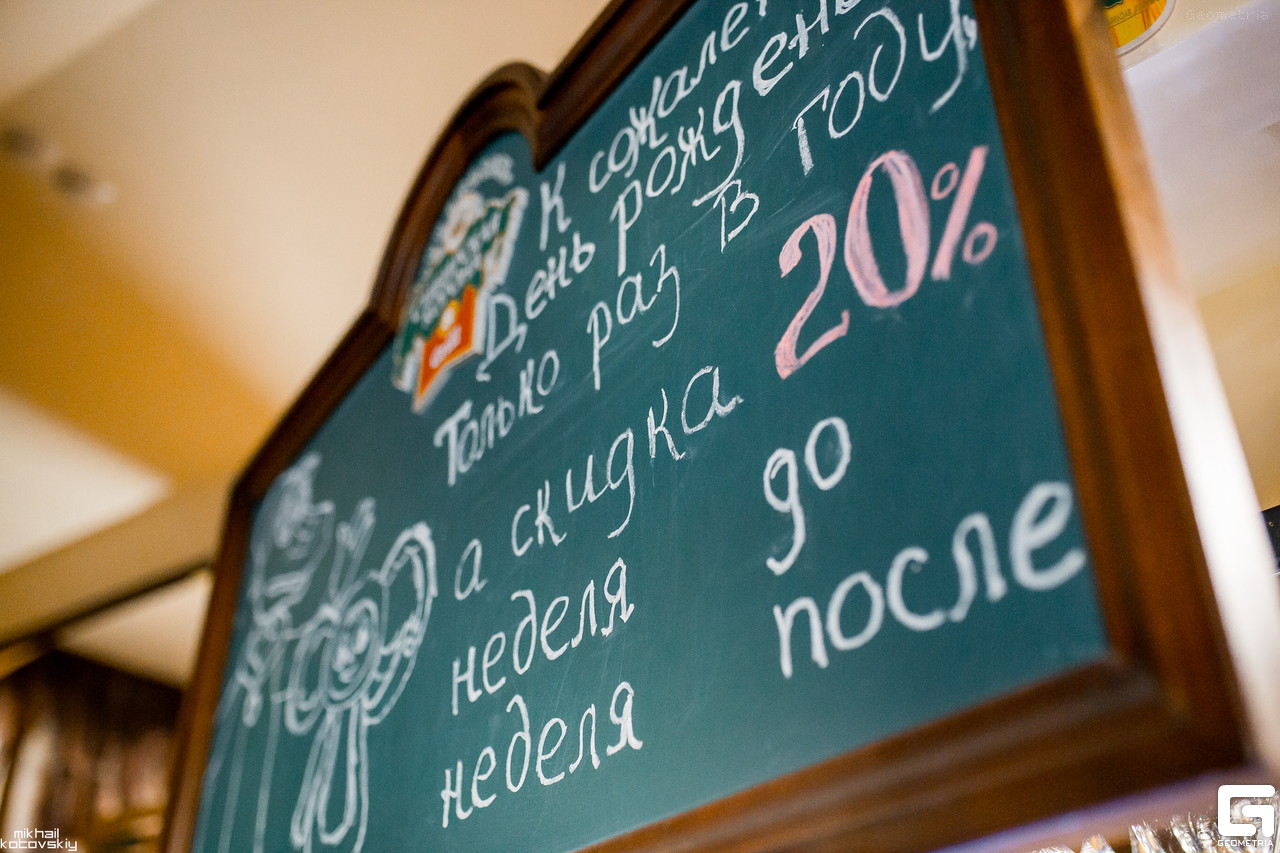 К сожале
День рождень
Только раз в году,
а скидка 20%
неделя до
неделя после
Geometria
mikhail
kotovskiy
GEOMETRIA